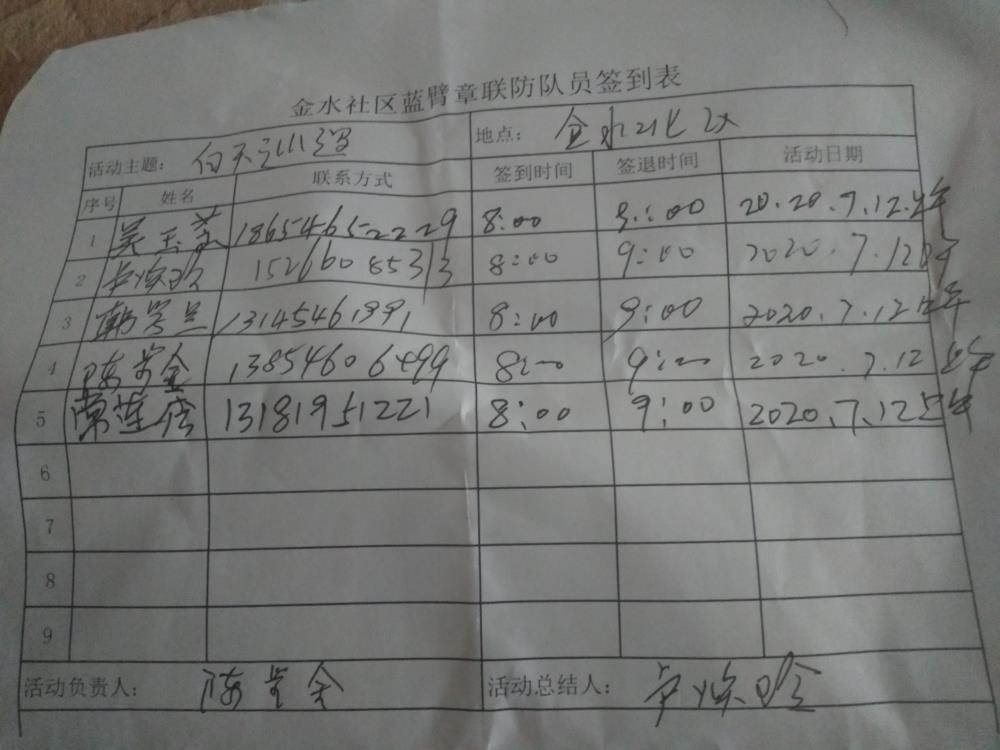 金水社区蓝臂章联防队员签到表
活动主题: 白天 地点: 金水北区
序号 姓名 联系方式 签到时间 签退时间 活动日期
1 吴玉 18654652229 8:00 9:00 2020.7.12.上午
2 15266085313 8:00 9:00 2020.7.12
3 韩 兰 13145461991 8:00 9:00 2020.7.12 上午
4 陈 金 13854606499 8:00 9:00 2020.7.12 上午
5 常莲 13181951221 8:00 9:00 2020.7.12上午
6
7
8
9
活动负责人: 陈 金 活动总结人: